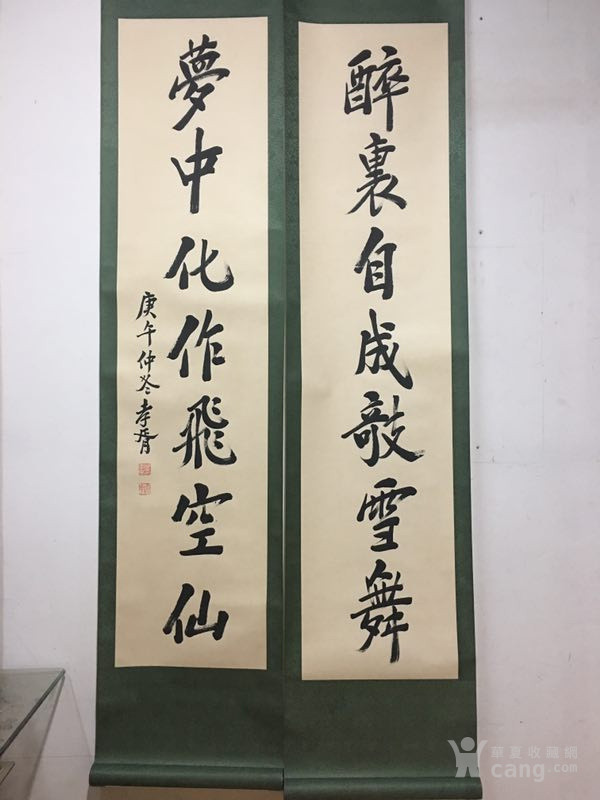 醉裏自成敲雪舞
夢中化作飛空仙
庚午仲冬孝胥
華夏收藏網
cang.com